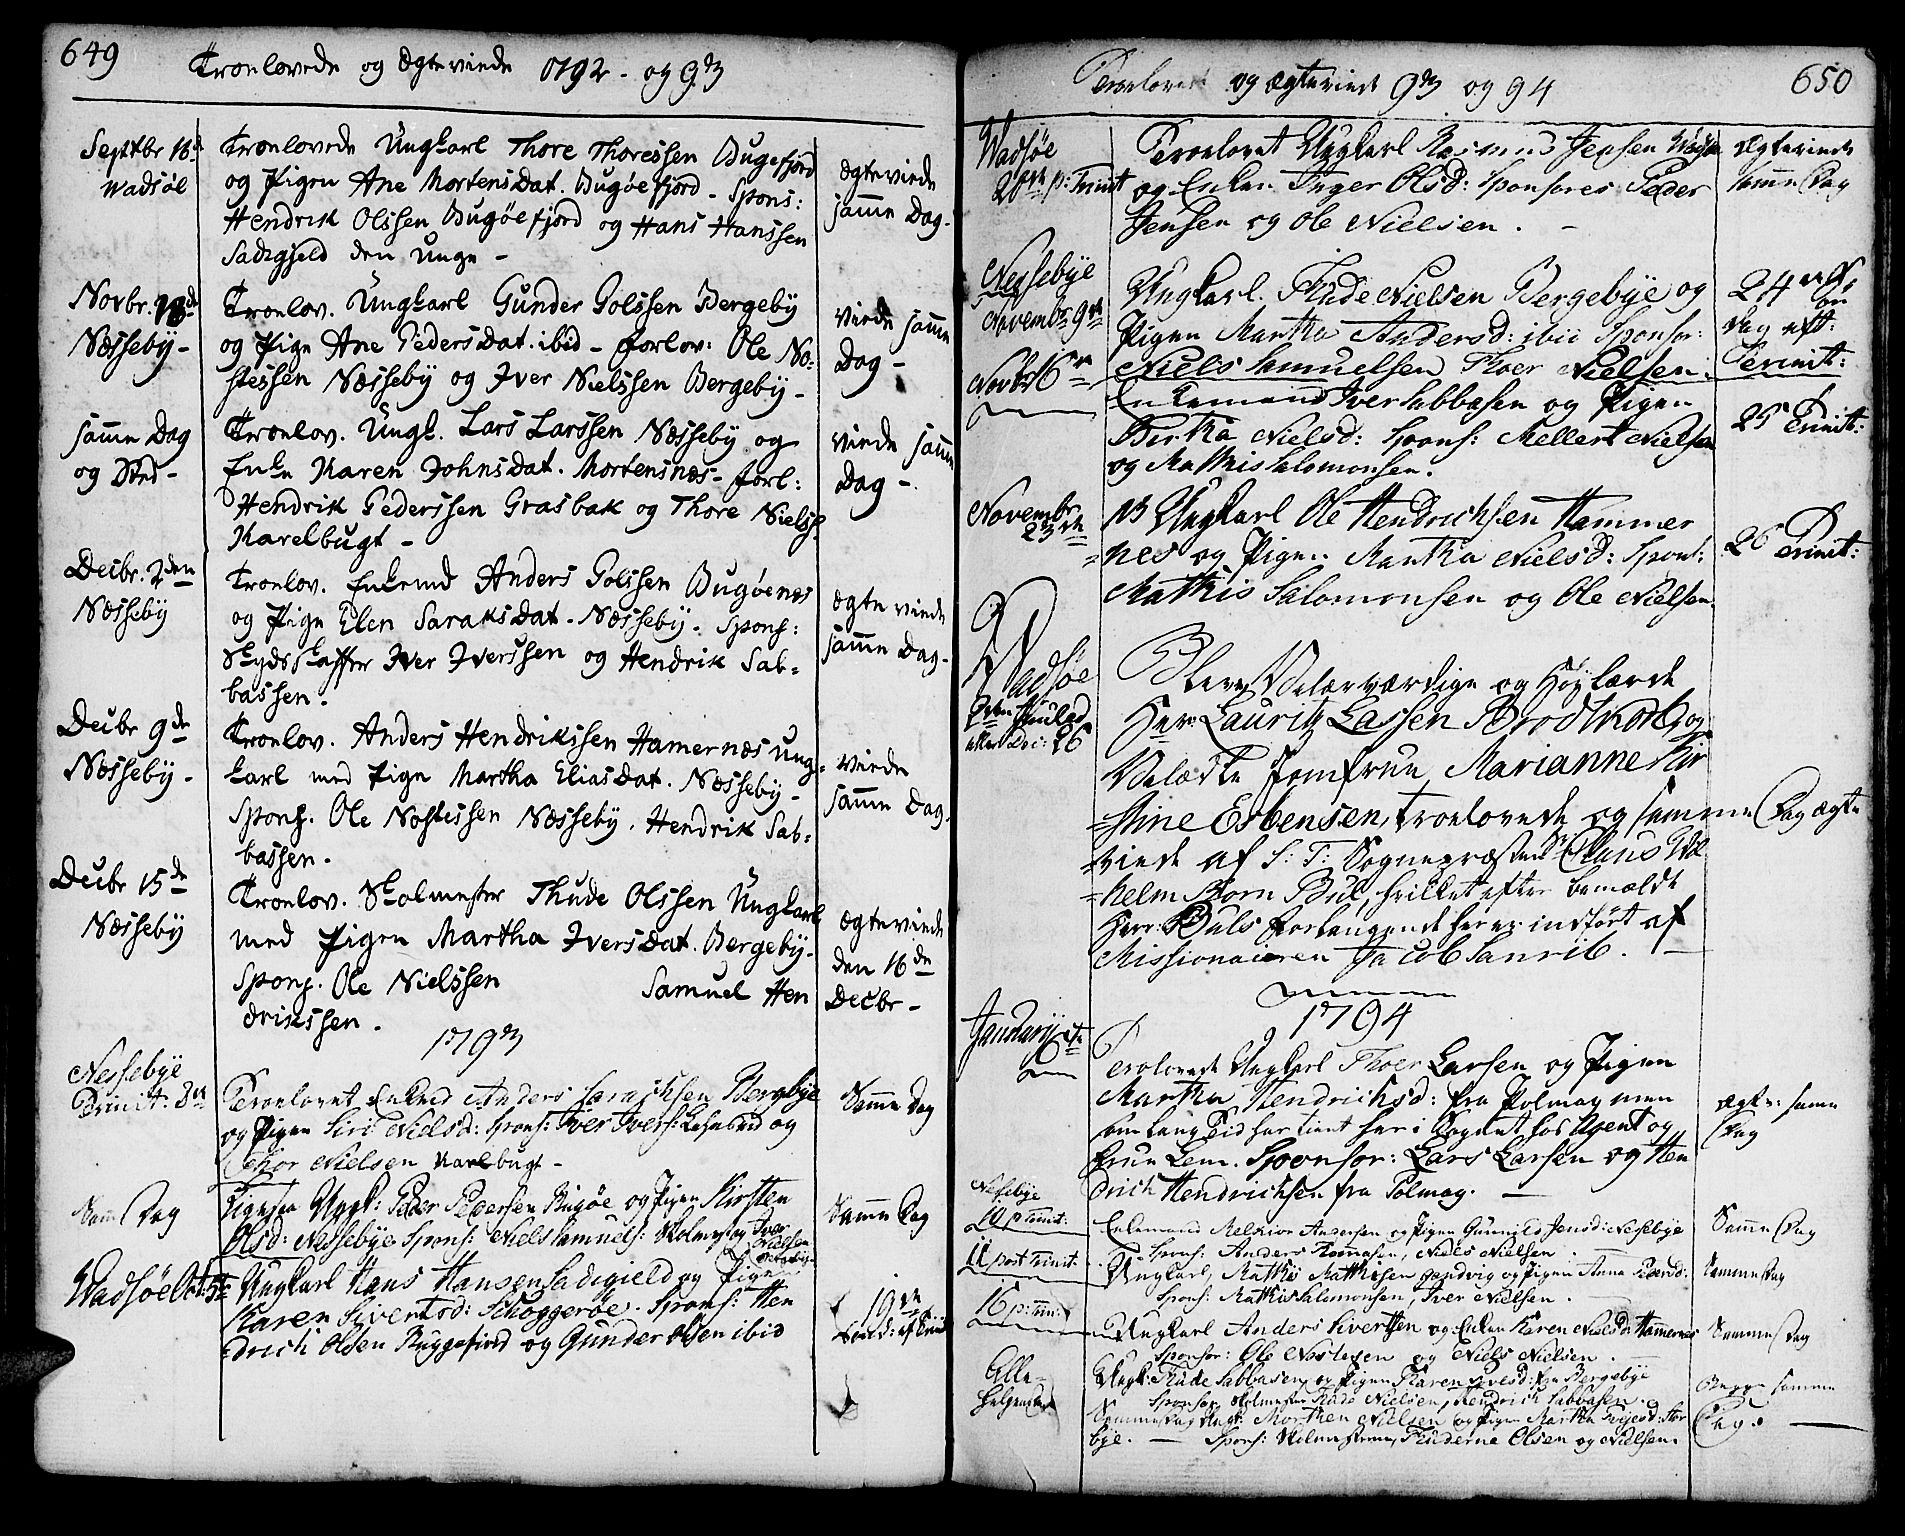 649
Troelovede og Ægteviede 1792 - og 93
Septbr 16d
Wadsöe
Troelovede Ungkarl Thore Thoressen Bugefjord
og Pigen Ane MortensDat. Bugöefjord - Spons:
Hendrik Olssen Bugöefjord og Hans Hanssen
Sadigjeld den Unge -
Ægteviede
samme Dag.
Novbr. 18d
Næsseby -
Troelov. Ungkarl Gunder Polssen Bergeby
og Pige Ane PedersDat. ibid - forlov: Ole No=
stessen Næsseby og Iver Nielssen Bergeby -
Viede samme
Dag -
samme Dag
og Stæd -
Troelov. Ungk. Lars Larssen Næsseby og
Enke Karen JohnsDat. Mortensnæs - forl:
Hendrik Pederssen Grasbak og Thore Nielss.
Karelbugt -
viede samme
Dag -
Decbr. 2den
Næsseby
Troelov. Enkemd Anders Polssen Bugöenæs
og Pige Elen SaraksDat. Næsseby. Spons:
Skydsskaffer Iver Iverssen og Hendrik Sab=
bassen.
Ægte viede
samme Dag -
Decbr 9de
Næsseby -
Troelov. Anders Hendrikssen Hamernæs Ung=
karl med Pige Martha EliasDat. Næsseby -
Spons. Ole Nostessen Næsseby. Hendrik Sab=
bassen.
viede
samme Dag.
Decbr 15de
Næsseby
Troelov. Skolmester Thude Olssen Ungkarl
med Pigen Martha IversDat. Bergeby.
Spons. Ole Nielssen Samuel Hen
drikssen.
Ægteviede
den 16de
Decbr -
1793
Nessebÿe
Trinit: 3de
Troelovet Enkemd Anders Sarachsen Bergebye
og Pigen Siri Nielsd: Spons: Iver Ivers: Lensmd og
Thor Nielsen Karlbugt -
Samme Dag
Samme Dag
Ligesaa Ungk: Peder Pedersen Bugöe og Pigen Kirsten
Olsd: Nessebye Spons: Niels Samuels: Skolmest og Iver
Nielsen
Samme Dag
Wadsöe Oct: 5te
Ungkarl Hans Hansen Sadigield og Pigen
Karen Sivertsd: Schoggeröe. Spons: Hen
drich Olsen Buggefiord og Gunder Olsen ibid
19de
650
Troelovet og Ægteviede 93 og 94
Wadsöe
20de p: Trinit
Troelovet Ungkarl Rasmus Jensen Wadsöe
og Enken Inger Olsd: Sponsores Peder
Jensen og Ole Nielsen. -
Ægteviede
samme Dag
Nessebÿe
Novembr 9de
Ungkarl. Thude Nielsen Bergebÿe og
Pigen Martha Andersd: ibid Sponsor:
Niels Samuelsen Thoer Nielsen.
24de Sön
dag eft:
Trinit:
Novbr 16de
Enkemand Iver Sabbasen og Pigen
Bertha Nielsd: Spons: Mellert Nielsen
og Mathis Salomonsen.
25 Trinit:
Novembr
23de
NB Ungkarl Ole Hendrichsen Hammer
nes og Pigen Martha Nielsd: Spons:
Mathis Salomonsen og Ole Nielsen.
26 Trinit:
Wadsöe
2den Juuledag
Blev Velærværdige og Höylærde
Her: Lauritz Lassen Brodtkorb og
Velædle Jomfrue Marianne Kir
=stine Esbensen, troelovede og samme Dag ægte
=viede af S: T: Sognepræsten Sr Claus Wil
=helm Born Bul, hvilket efter bemældte
Herr: Buls forlangende her er indfört af
Missionairen Jacob Sanrüb. -
1794
Januarÿ 6te
Trolovede Ungkarl Thoer Larsen og Pigen
Martha Hendrichsd: fra Polmag men
som lang Tid har tient her i Sognet hos Agent og
frue Lem. Sponsor: Lars Larsen og Hen
drich Hendrichsen fra Polmag. -
Ægtev: samme
Dag
Nessebye
10 p Trinit:
Enkemand Melkior Andersen og Pigen Gunnild Jensd: Nessebye
Spons: Anders Thomasen, Niels Nielsen.
Samme Dag
11 post Trinit:
Ungkarl, Mathis Mathisen Jendvig og Pigen Anna Pedersd:
Spons: Mathis Salomonsen, Iver Nielsen.
Samme Dag
16 p: Trin:
Ungkarl Anders Sivertsen og Enken Karen Nielsd: Hamernes
Sponsor: Ole Nostesen og Niels Nielsen.
Samme Dag
Alle=
helgensdag
Ungk: Thude Sabbasen og Pigen Karen Iversd: fra Bergebye
Sponsor, Skolmester Thude Nielsen, Hendrich Sabbasen.
Samme Dag Ungk: Morthen Nielsen og Pigen Martha
bye. - Spons: Skolmesterne, Thuderne Olsen og Nielsen.
Begge samme
Dag.